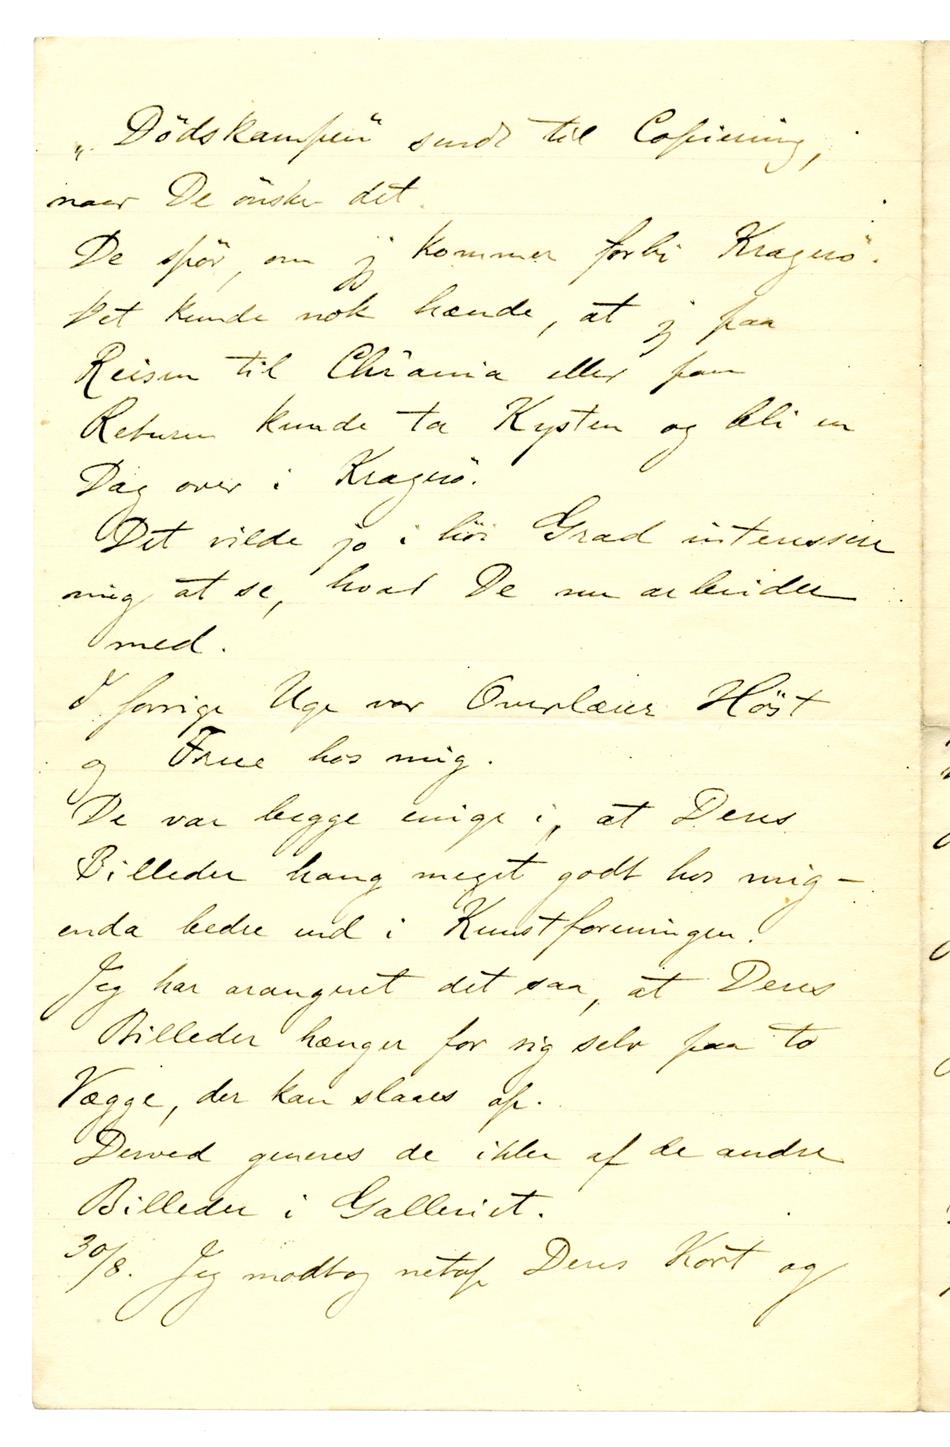 „Dödskampen" sendt til Copiering,
naar De önsker det.
De spör, om jeg kommer forbi Kragerö.
Det kunde nok hænde, at jeg paa
Reisen til Chrania eller paa
Returen kunde ta Kysten og bli en
Dag over i Kragerö.
Det vilde jo i höi Grad interessere
mig at se, hvad De nu arbeider
med.
I forrige Uge var Overlæge Höst
og Frue hos mig.
De var begge enige i, at Deres
Billeder hang meget godt hos mig –
enda bedre end i Kunstforeningen.
Jeg har arangeret det saa, at Deres
Billeder hænger for sig selv paa to
Vægge, der kan slaaes op.
Derved generes de ikke af de andre
Billeder i Galleriet.
30/8. Jeg modtog netop Deres Kort og